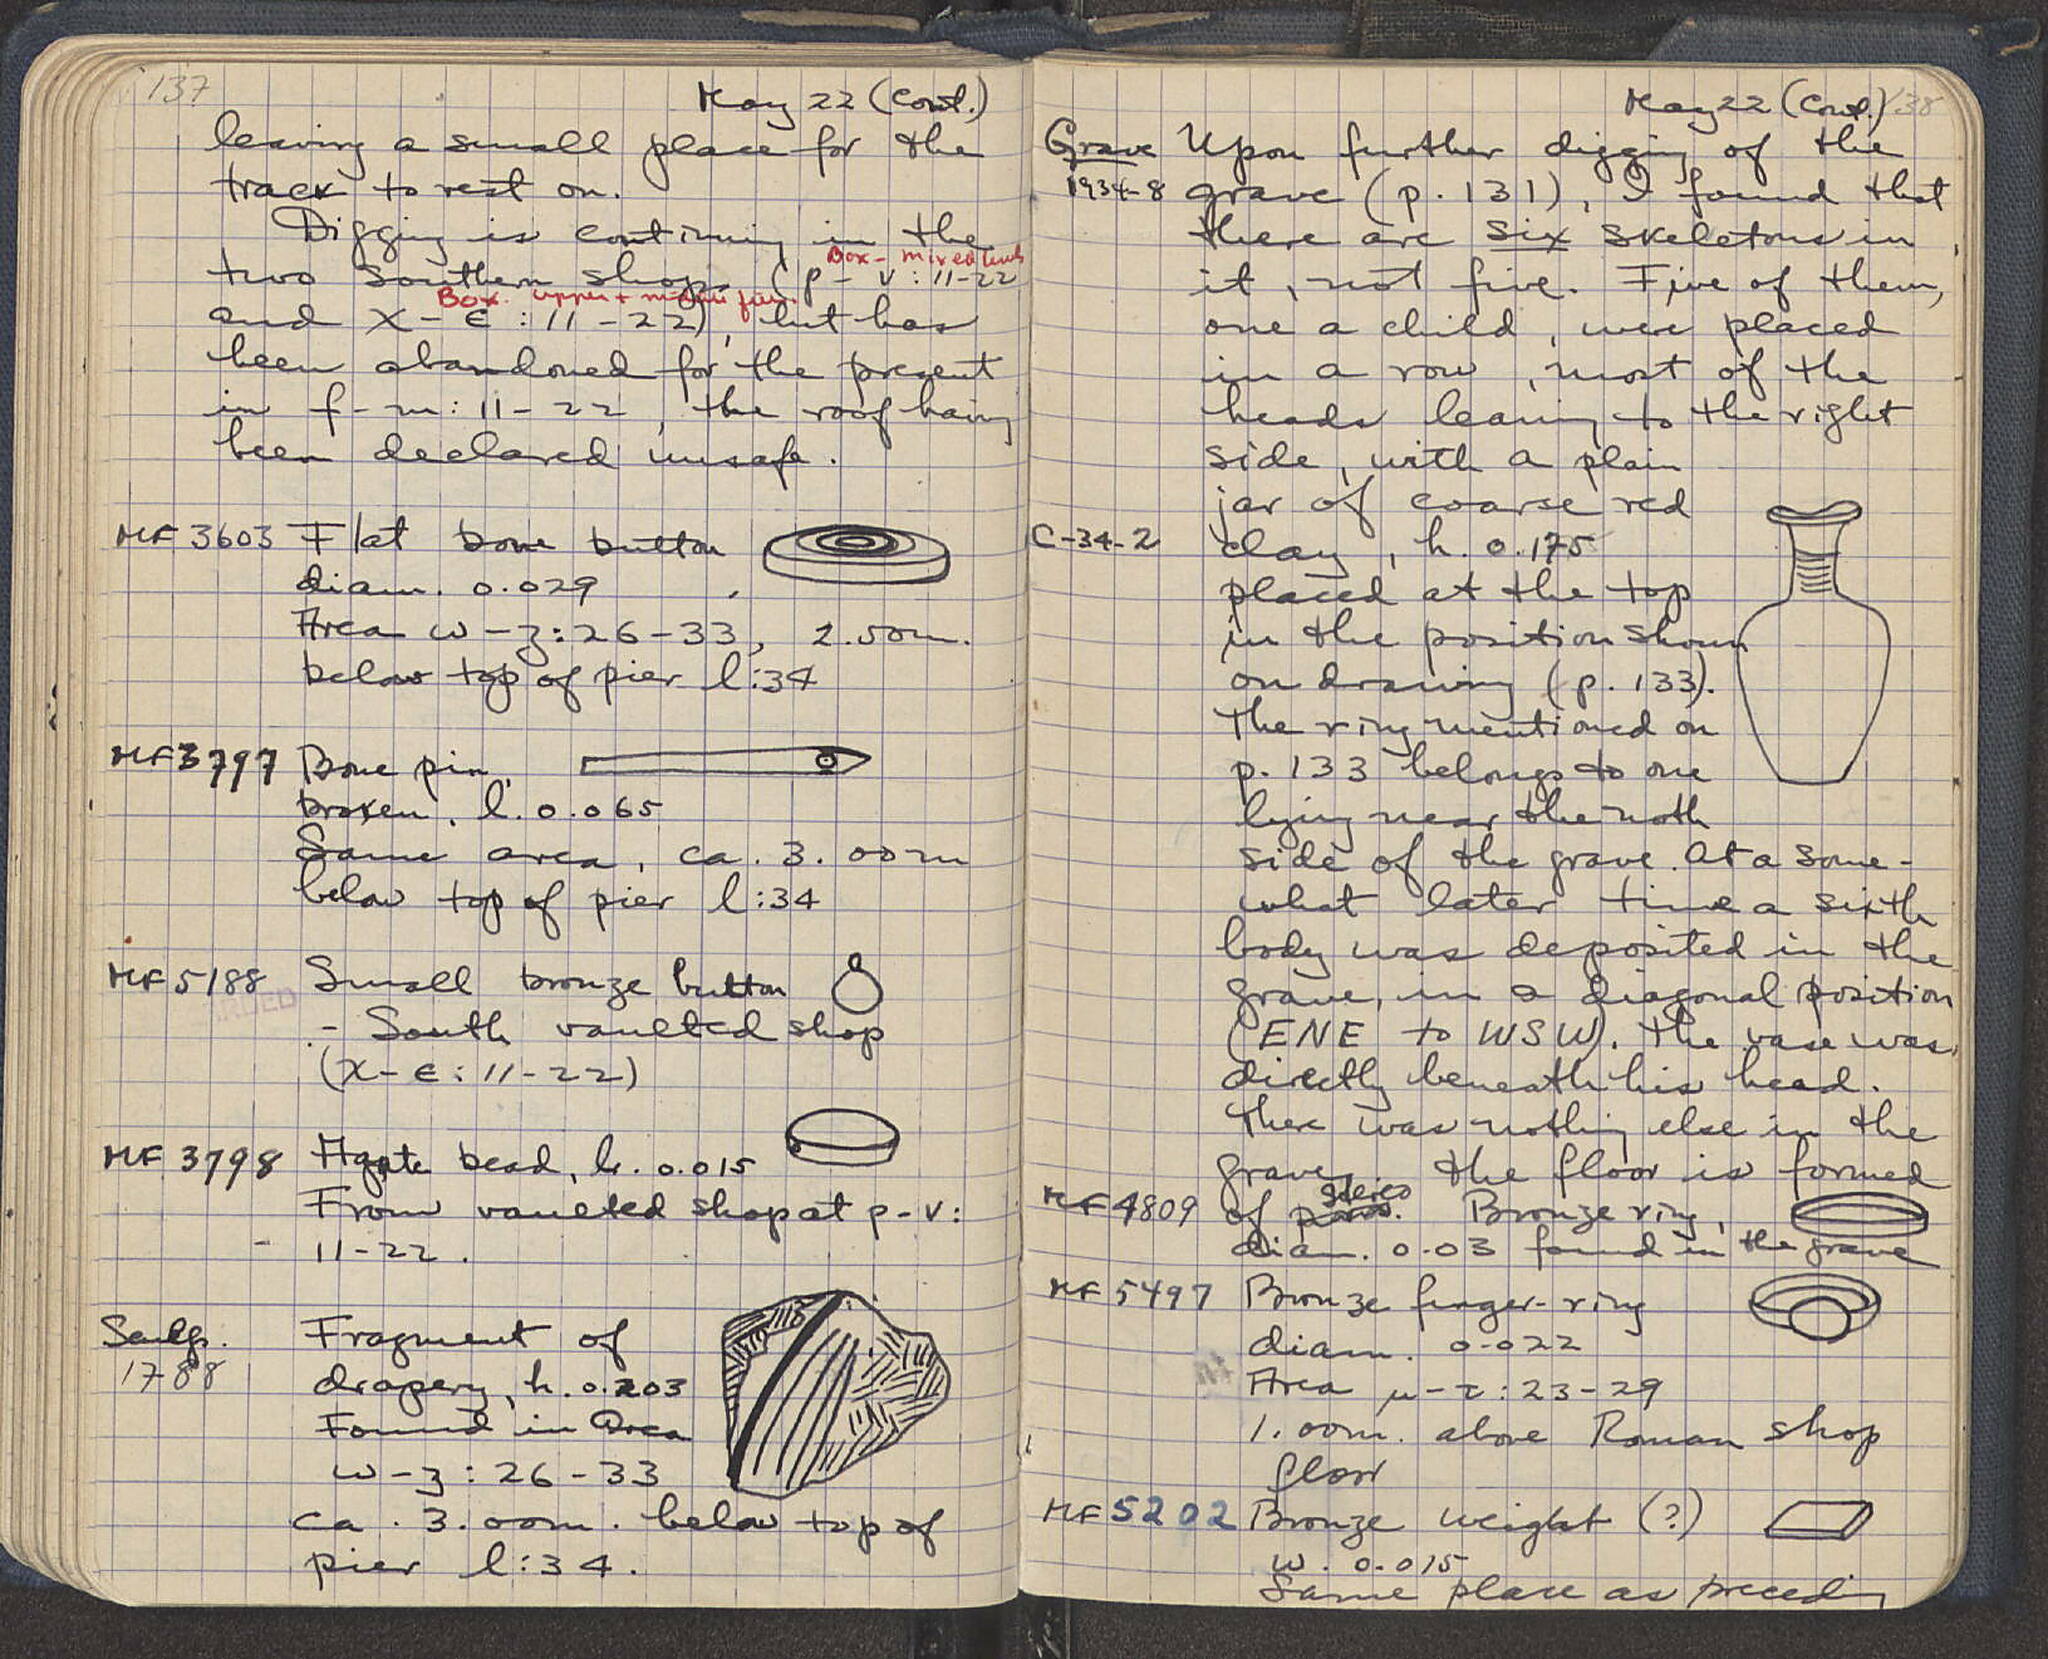 137
May 22 (cont.)
leaving a small place for the
track to rest on.
Digging is continuing in the
Box - mixed levels
two southern shops (p-v:11-22
Box. upper + middle fill.
and X-ϵ:11-22), but has
been abandoned for the present
in f-m:11-22, the roof having
been declared unsafe.
MF 3603 Flat bone button
diam. 0.029
Area w-z:26-33, 2.50m.
below top of pier l:34
MF 3797 Bone pin,
broken. l. 0.065
Same area, ca. 3.00m
below top of pier l:34
MF 5188 Small bronze button
- South vaulted shop
(X-ϵ:11-22)
MF 3798 Agate bead, h. 0.015
From vaulted shop at p-v:
11-22.
Sculp. Fragment of
1788 drapery, h. 0.203
Found in Area
w-z:26-33
ca. 3.00m. below top of
pier l:34.
May 22 (cont.) 138
Grave Upon further digging of the
1934-8 grave (p. 131), I found that
there are six skeletons in
it, not five. Five of them,
one a child, were placed
in a row, most of the
heads leaning to the right
side, with a plain
jar of coarse red
C-34-2 clay, h. 0.175
placed at the top
in the position shown
on drawing (p. 133).
The ring mentioned on
p. 133 belongs to one
lying near the north
side of the grave. At a some-
what later time a sixth
body was deposited in the
grave, in a diagonal position
(ENE to WSW). The vase was
directly beneath his head.
There was nothing else in the
grave. The floor is formed
stereo
MF 4809 of poros. Bronze ring,
diam. 0.03 found in the grave
MF 5497 Bronze finger-ring
diam. 0.022
Area μ-τ:23-29
1.00m. above Roman shop
floor
MF 5202 Bronze weight (?)
w. 0.015
Same place as preceding